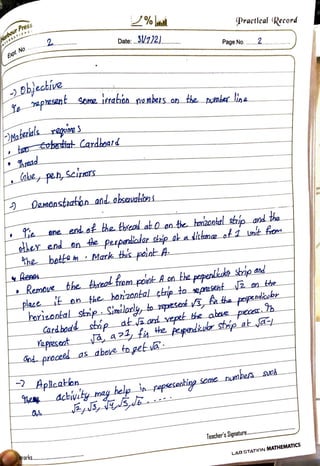 Harbour Press
Practical Record
Expt. No. 2
Date: 31/7/21
Page No. 2
→) Objective
To represent some irration numbers on the number line
→) Materials require)
• Cardboard
• Thread
• Glue, pen, Scirrors
→) Demonstration and observations
• Tie one end of the thread at O on the horizontal strip and the
other end on the perpendicular strip at a distance of 1 unit from
the bottom. Mark this point A.
• Remove the thread from point A on the perpendicular strip and
place it on the horizontal strip to represent √2 on the
horizontal strip. Similarly, to represent √3, fix the perpendicular
Cardboard strip at √2 and repet the above To
represent √a, a>1, fix the perpendicular strip at √a-1
and proceed as above to get √a.
→) Application
activity may help in representing some numbers such
as √2, √3, √4, √5, √6 .....
Teacher's Signature
LAB STATION MATHEMATICS